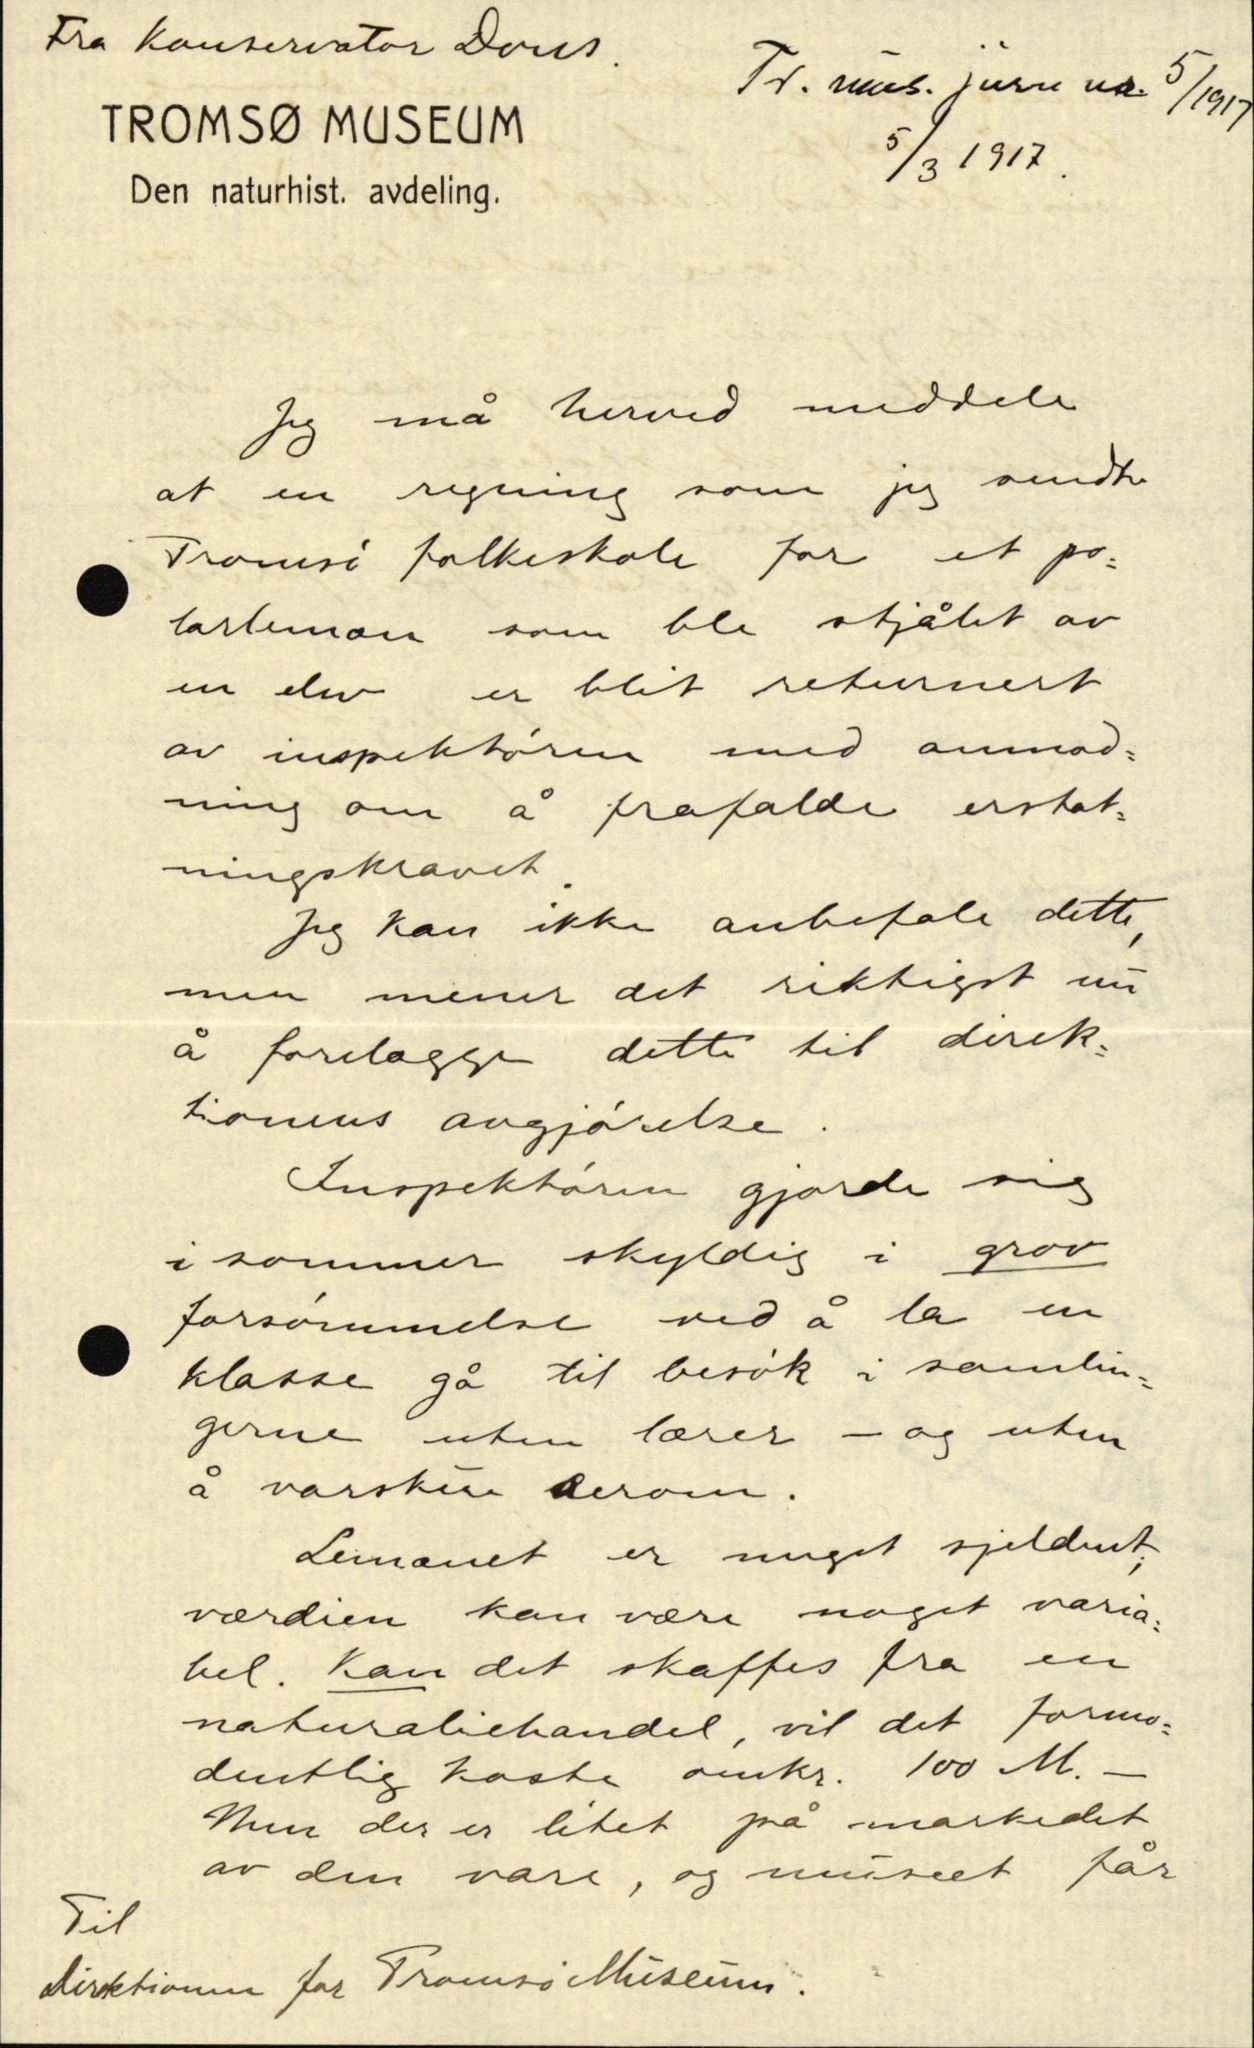 Fra Konservator Dons.
Tr. mus. jurn nr. 5/1917
TROMSØ MUSEUM
5/3 1917.
Den naturhist. avdeling.
Jeg må herved meddele
at en regning som jeg sendte
Tromsö folkeskole for et po=
larleman som ble stjålet av
en elev er blit returnert
av inspektören med anmod=
ning om å frafalde erstat=
ningskravet.
Jeg kan ikke anbefale dette,
men mener det riktigst nu
å forelægge dette til direk=
tionens avgjörelse.
Inspektören gjorde sig
i sommer skyldig i grov
forsömmelse ved å la en
klasse gå til besök i samlin=
gerne uten lærer — og uten
å varskue derom.
Lemænet er meget sjeldent;
værdien kan være noget varia=
bel. Kan det skaffes fra en
naturaliehandel, vil det formo=
dentlig koste omkr. 100 M. —
Men der er litet på markedet
av den vare, og museet får
Til
direktionen for Tromsö Museum.